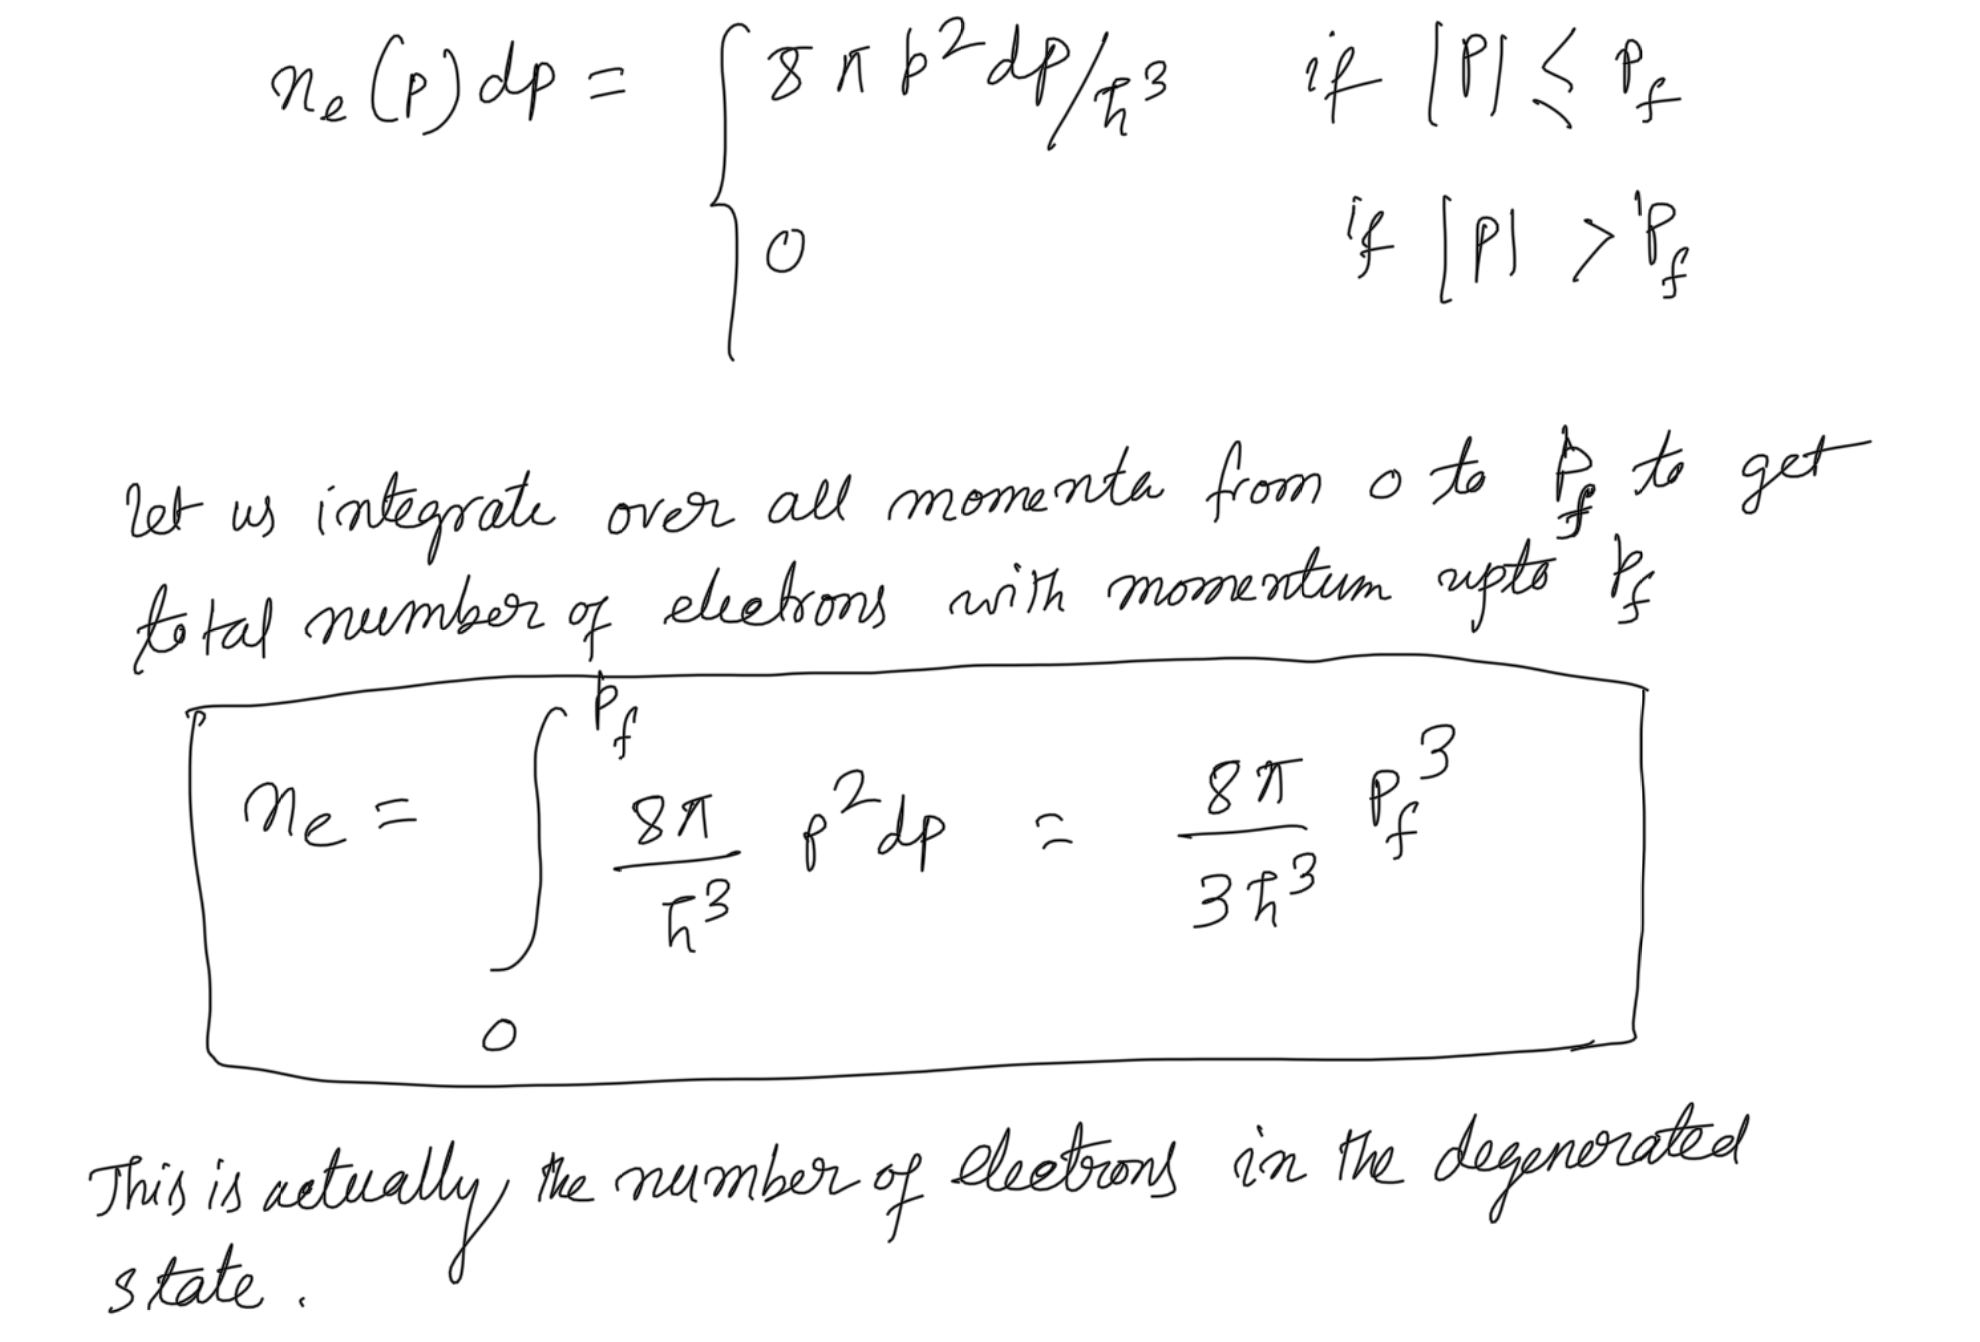 n_e(p)dp = { 8πp²dp/ħ³ if |p| ≤ p_f
0 if |p| > p_f
Let us integrate over all momenta from 0 to p_f to get
total number of electrons with momentum upto p_f
n_e = ∫₀^{p_f} 8π/ħ³ p²dp = 8π/3ħ³ p_f³
This is actually, the number of electrons in the degenerated
state.